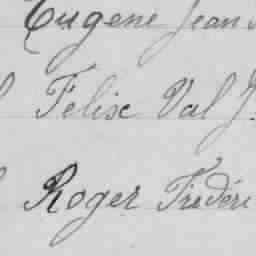 Eugene Jean
Felix Val J
Roger Frédéri